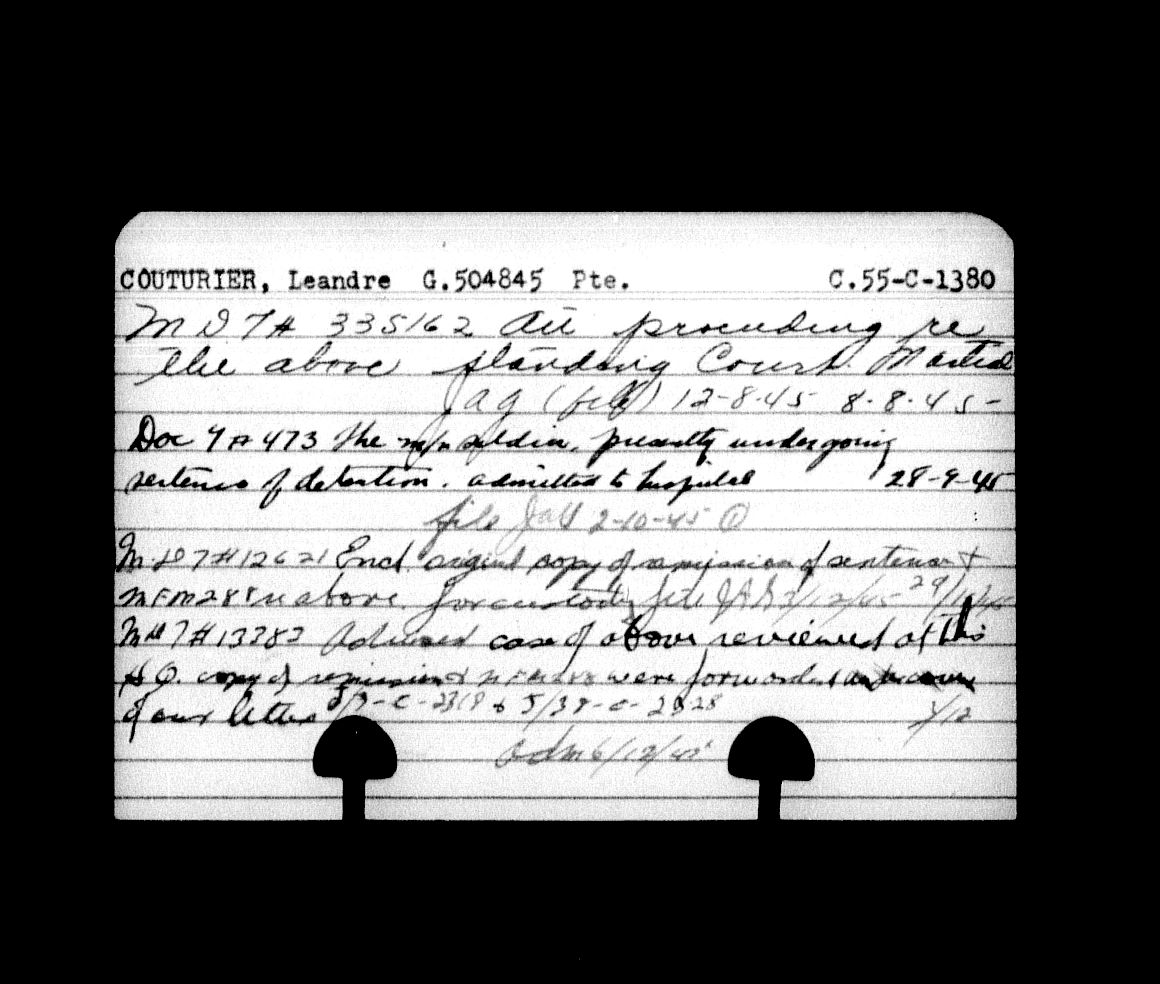 COUTURIER, Leandre G.504845 Pte. C.55-C-1380
M D 7# 335162 Att proceeding re
the above standing Court Martial
JAG (file) 12-8-45 8-8-45
Doc 7 # 473 the m/n soldier, presently undergoing
sentence of detention. admitted to hospital 28-9-45
file JAG 2-10-45
M.D 7#12621 Encl original copy of remission of sentence &
MFM288 re above. for custody file JAG 3/12/45 29/11/45
MD 7#13383 Advised case of above reviewed at this
H.Q. copy of remission & MFM288 were forwarded under cover
of our letter & 5/38-C-2828 4/12
Adm 6/12/45